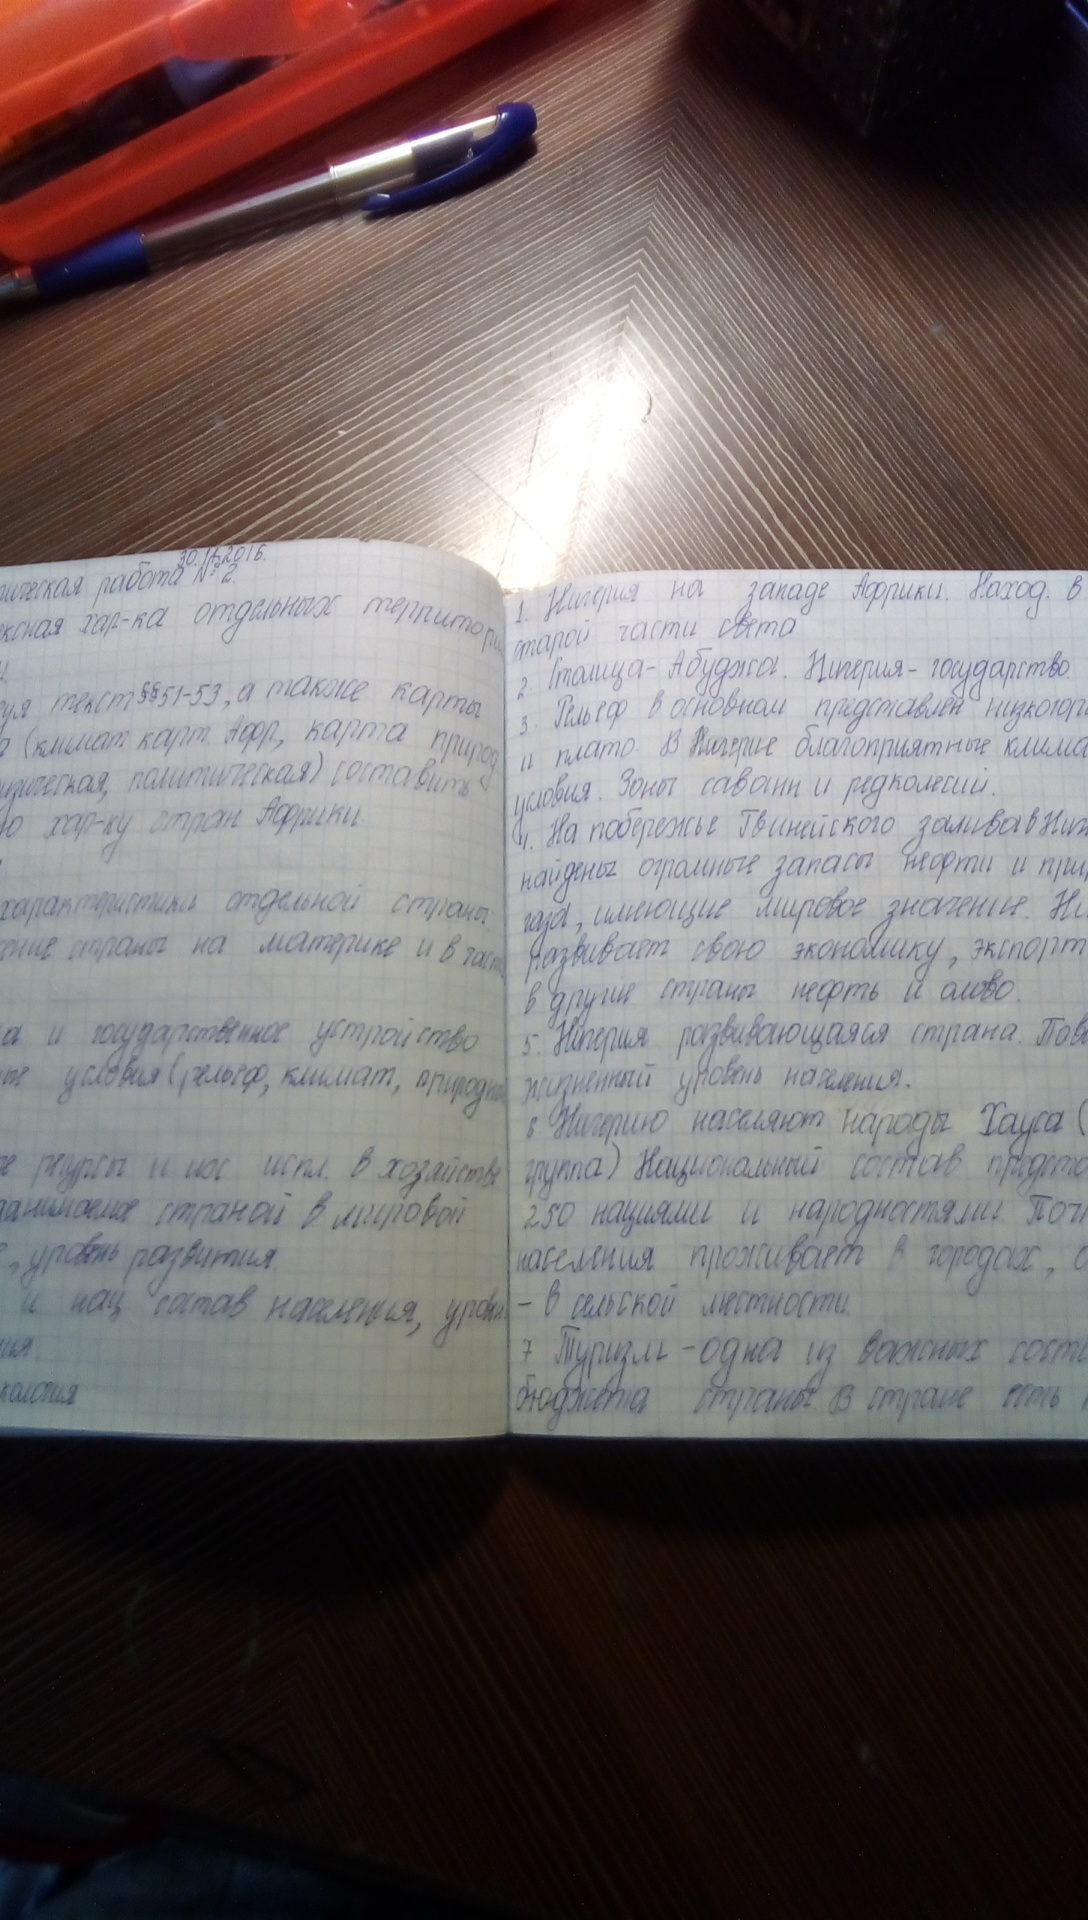 30.11.2016.
ическая работа №2.
ксная хар-ка отдельных территори
уя текст §§51-53, а также карты
(климат карт. Афр, карта природ
ическая, политическая) составить
ю хар-ку стран Африки.
характеристики отдельной страны.
ение страны на материке и в част
а и государственное устройство
ые условия (рельеф, климат, природн
е ресурсы и их испл. в хозяйстве
занимаемое страной в мировой
е, уровень развития
и нац состав населения, уровен
ия.
1. Нигерия на западе Африки. Наход. в
старой части света
2. Столица - Абуджа. Нигерия - государство.
3. Рельеф в основном представлен низкогор
и плато. В Нигерие благоприятные клима
условия. Зоны саванн и редколесий.
4. На побережье Гвинейского залива в Ниг
найдены огромные запасы нефти и при
газа, имеющие мировое значение. Ни
развивает свою экономику, экспорт
в другие страны нефть и олово.
5. Нигерия развивающаяся страна. Пов
жизненный уровень населения.
6 Нигерию населяют народы Хауса (
группа) Национальный состав предста
250 нациями и народностями Поч
населения проживает в городах,
- в сельской местности.
7 Туризм - одна из важных соста
бюджета страны. В стране есть